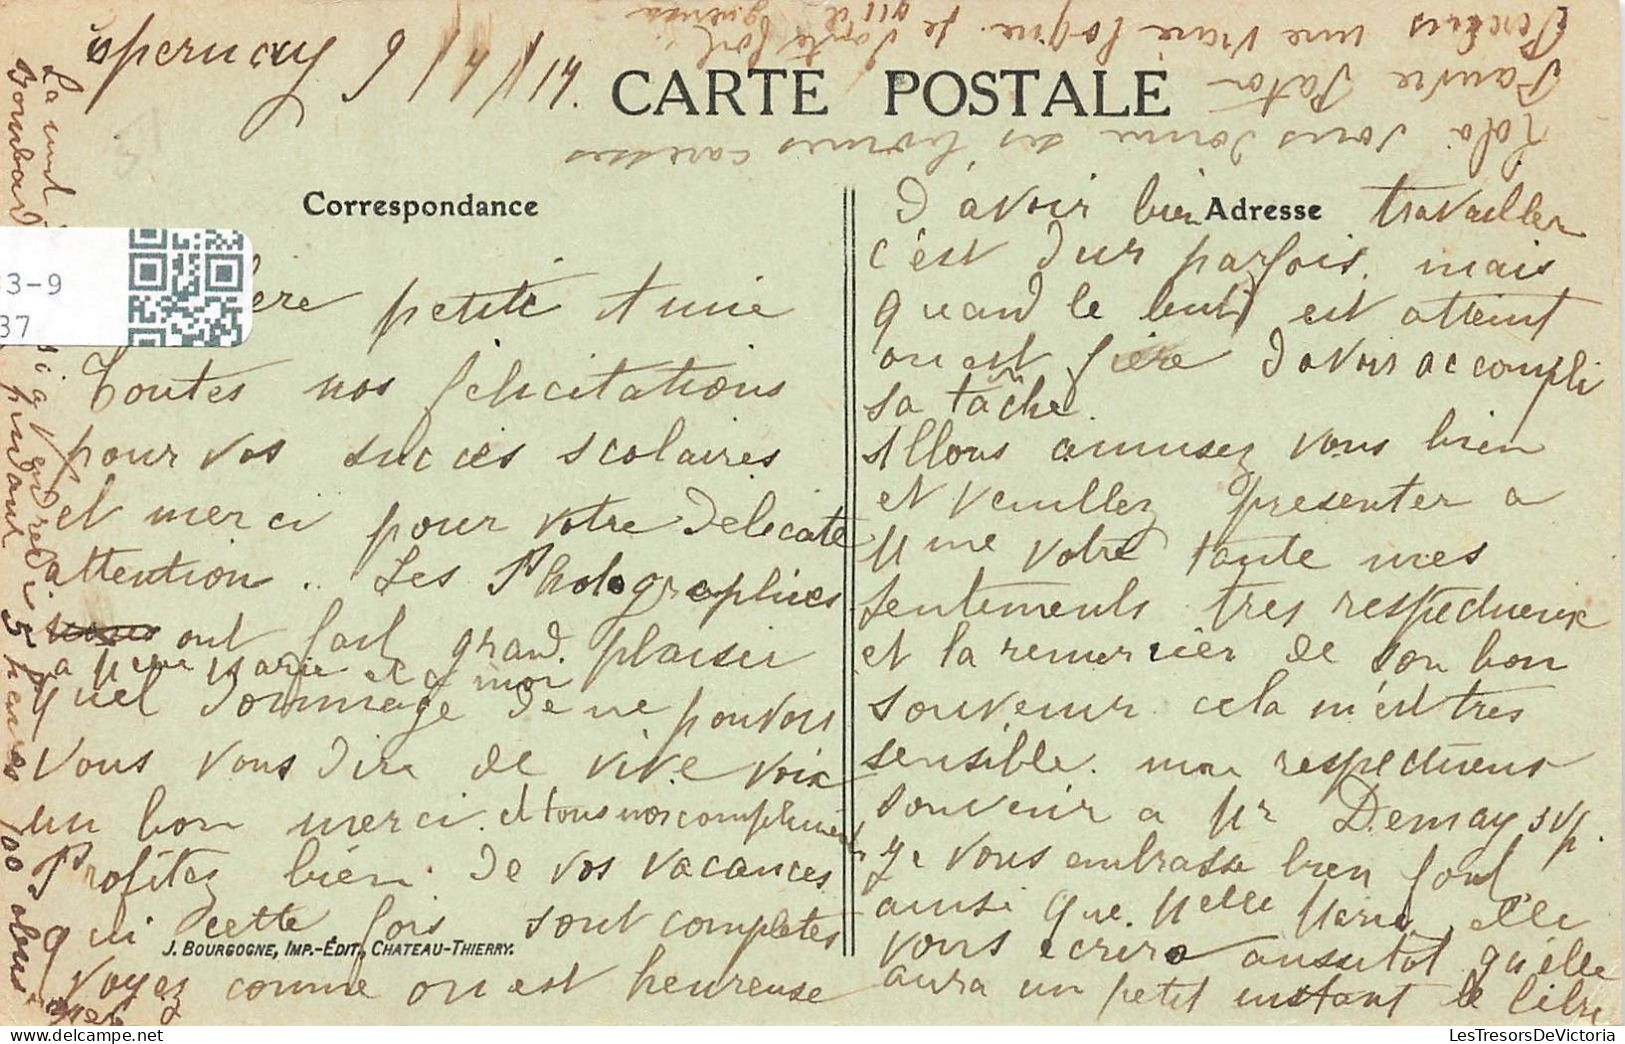 Epernay 9/4/14.
CARTE POSTALE
Correspondance
Adresse
petite Amie
Toutes nos félicitations
pour vos succès scolaires
et merci pour votre délicate
attention .. Les Photographies
ont fait grand plaisir
a Mme Marie et a moi
quel dommage de ne pouvoir
vous vous dire de vive voix
un bon merci. et tous nos compliments
Profitez bien de vos vacances
qui cette fois sont complètes
voyez comme on est heureuse
J. BOURGOGNE, IMP.-ÉDIT., CHATEAU-THIERRY.
D'avoir bien travailler
c'est dur parfois. mais
quand le but est atteint
on est fière d'avoir accompli
sa tâche.
Allons amusez vous bien
et veuillez présenter a
Mme votre tante mes
sentiments très respectueux
et la remercier de son bon
souvenir cela m'est très
sensible. mon respectueux
souvenir a Mr Demay svp.
Je vous embrasse bien fort
ainsi que Melle Marie. elle
vous écrira aussitot qu'elle
aura un petit instant de libre
Lola vous donne ses bonnes caresses
Pauvre Pator
une vraie
La nuit
Bombard
pendant 5 heures 100 obus
33-9
37
LesTresorsDeVictoria